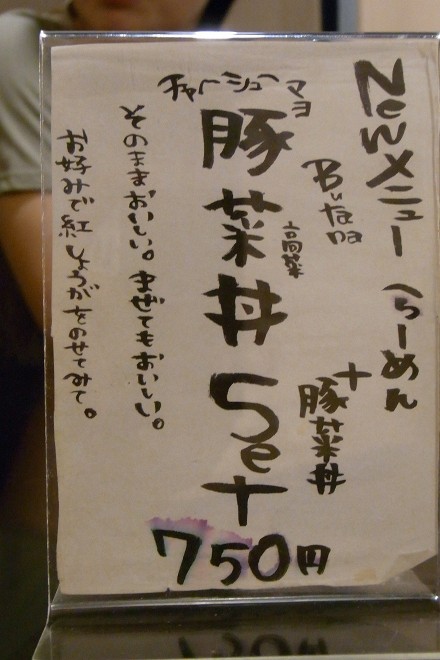 Newメニュー
らーめん
+
豚菜丼
Butana
チャーシュー
マヨ
豚菜丼 Set
高菜
750円
そのままおいしい。まぜてもおいしい。
お好みで紅しょうがをのせてみて。